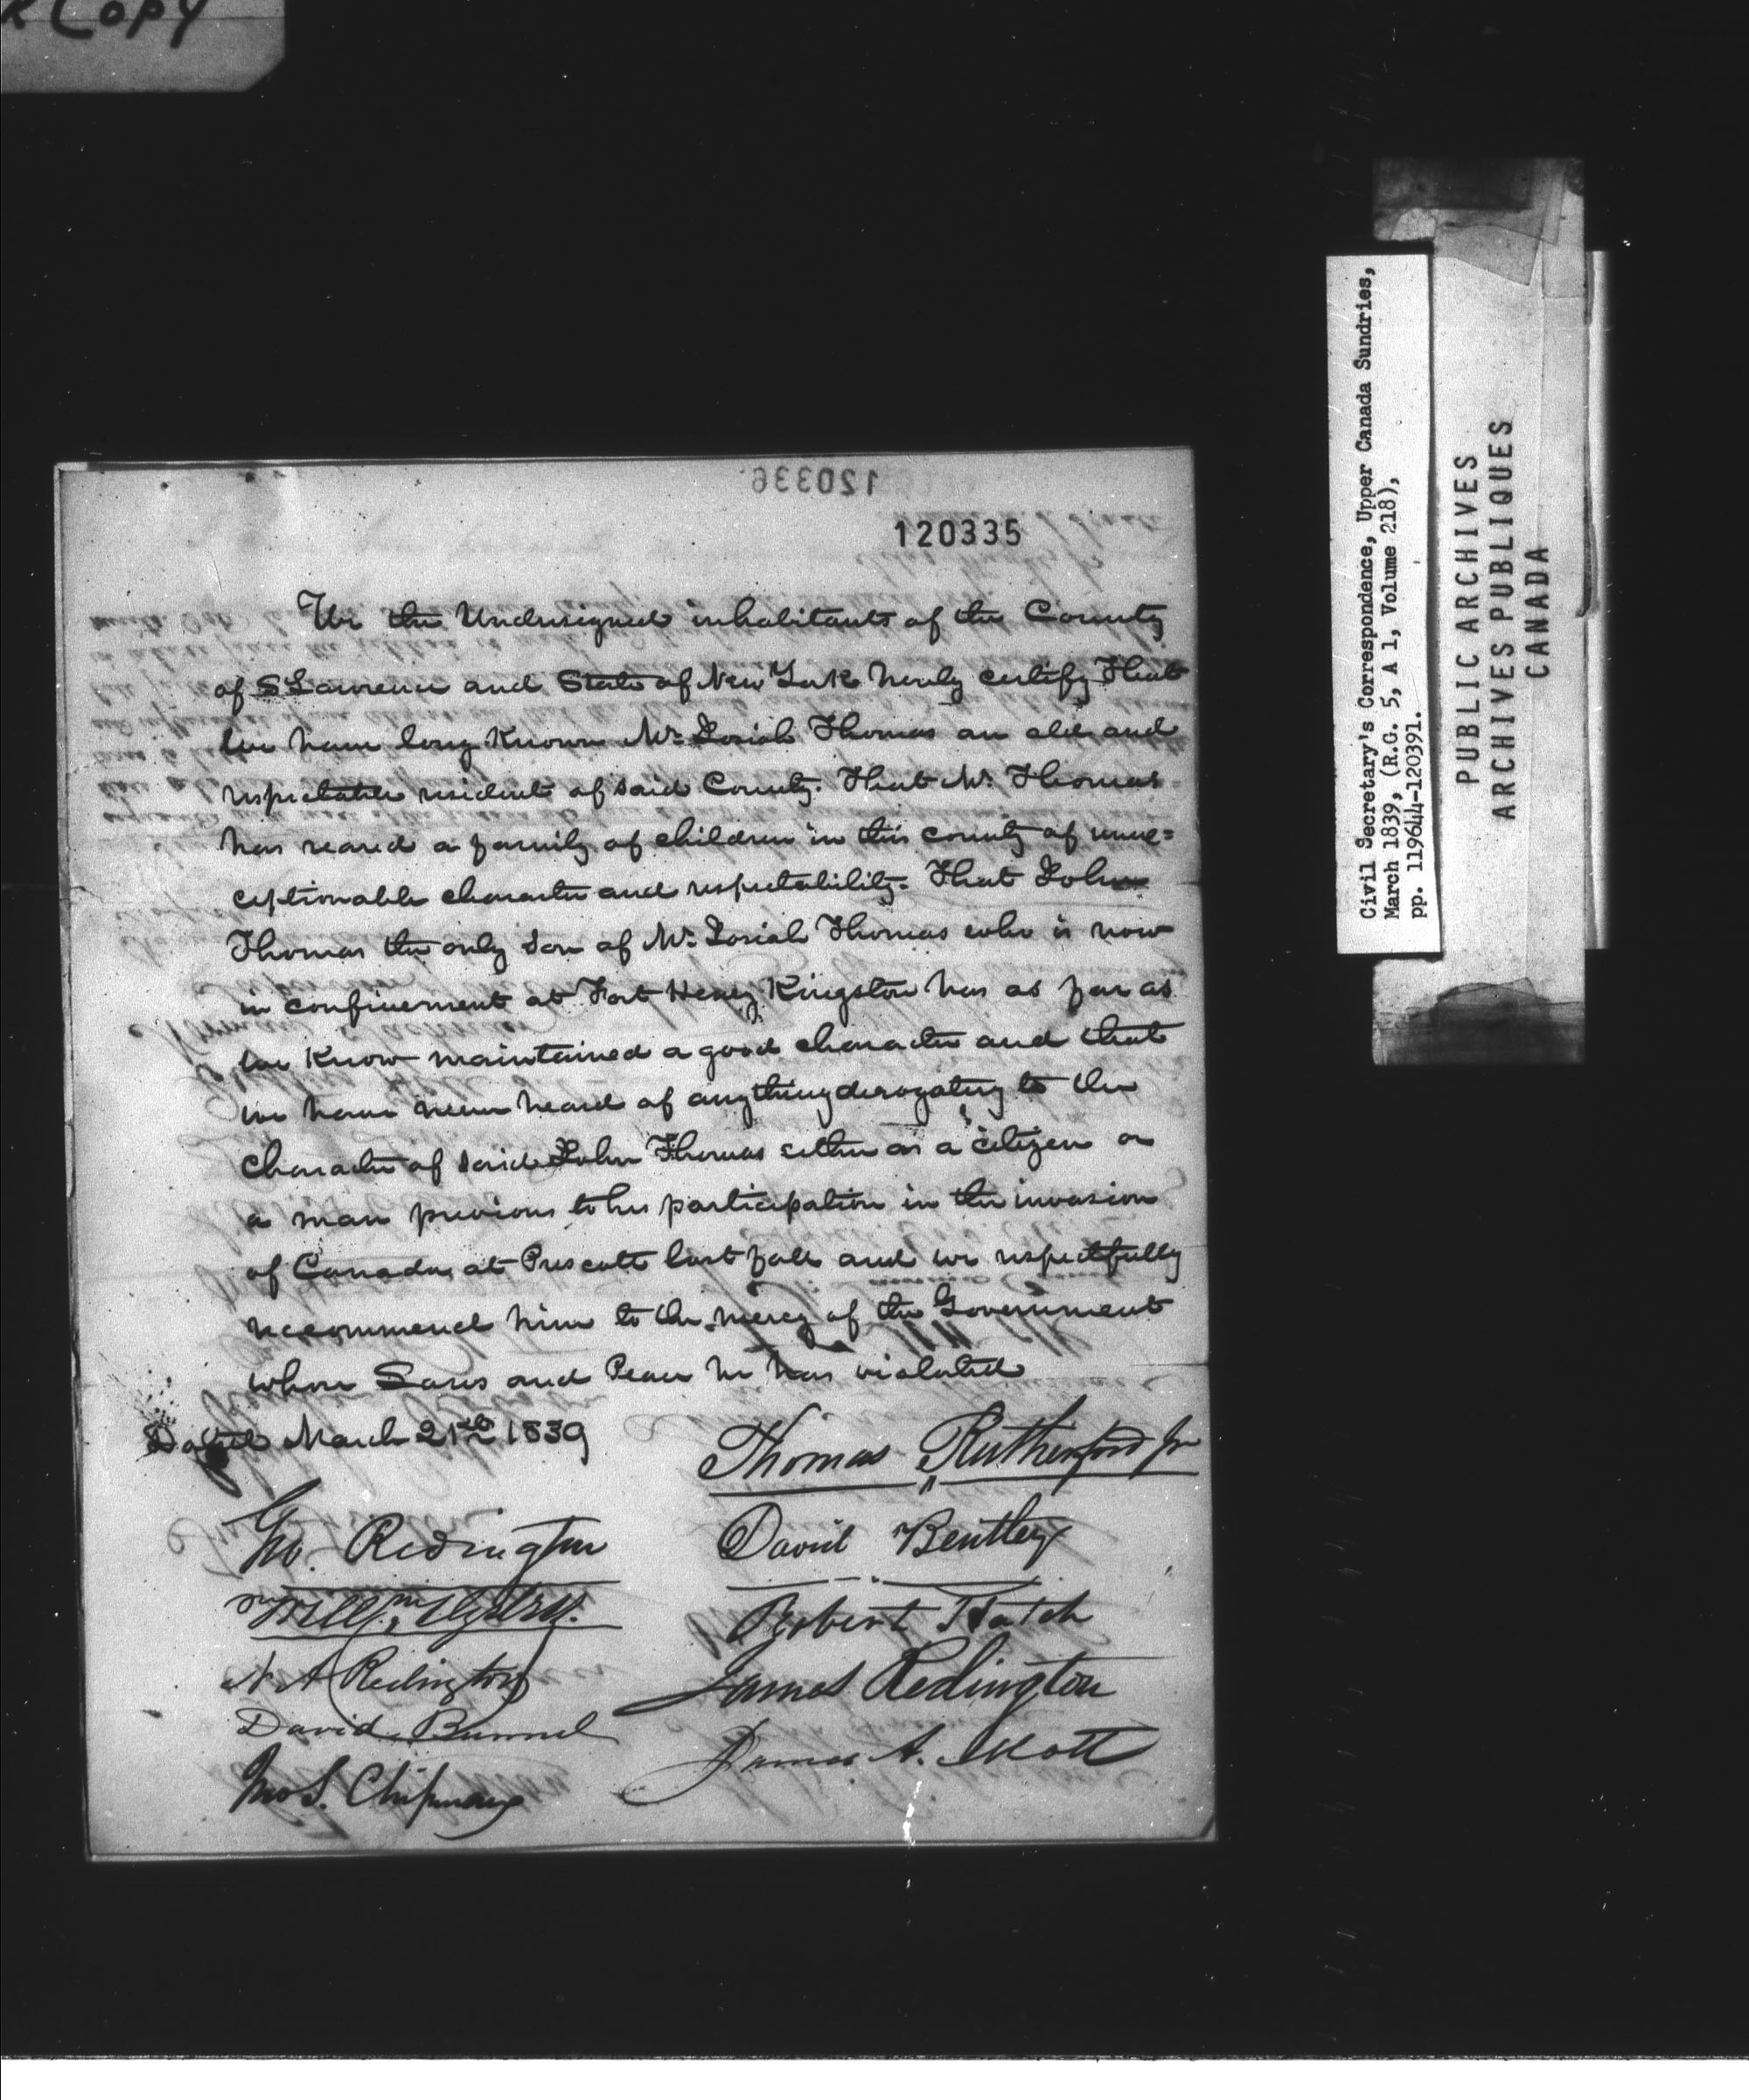 Copy
120336
120335
We the Undersigned inhabitants of the County
of St Lawrence and State of New York hereby certify That
we have long known Mr Josiah Thomas an old and
respectable resident of said County. That Mr Thomas
has reared a family of children in this county of unex=
ceptionable character and respectability. That John
Thomas the only son of Mr Josiah Thomas who is now
in confinement at Fort Henry Kingston has as far as
we know maintained a good character and that
we have never heard of anything derogatory to the
character of said John Thomas either as a citizen or
a man previous to his participation in the invasion
of Canada at Prescott last fall and we respectfully
reccommend him to the mercy of the Government
whose Laws and Peace he has violated
Dated March 21st 1839
Thomas Rutherford Jr
Geo. Redington
David Bentley
Robert Hatch
N A Redington
James Redington
David Bunnel
James A. Mott
Jno S. Chipman
Civil Secretary's Correspondence, Upper Canada Sundries,
March 1839, (R.G. 5, A 1, Volume 218),
pp. 119644-120391.
PUBLIC ARCHIVES
ARCHIVES PUBLIQUES
CANADA